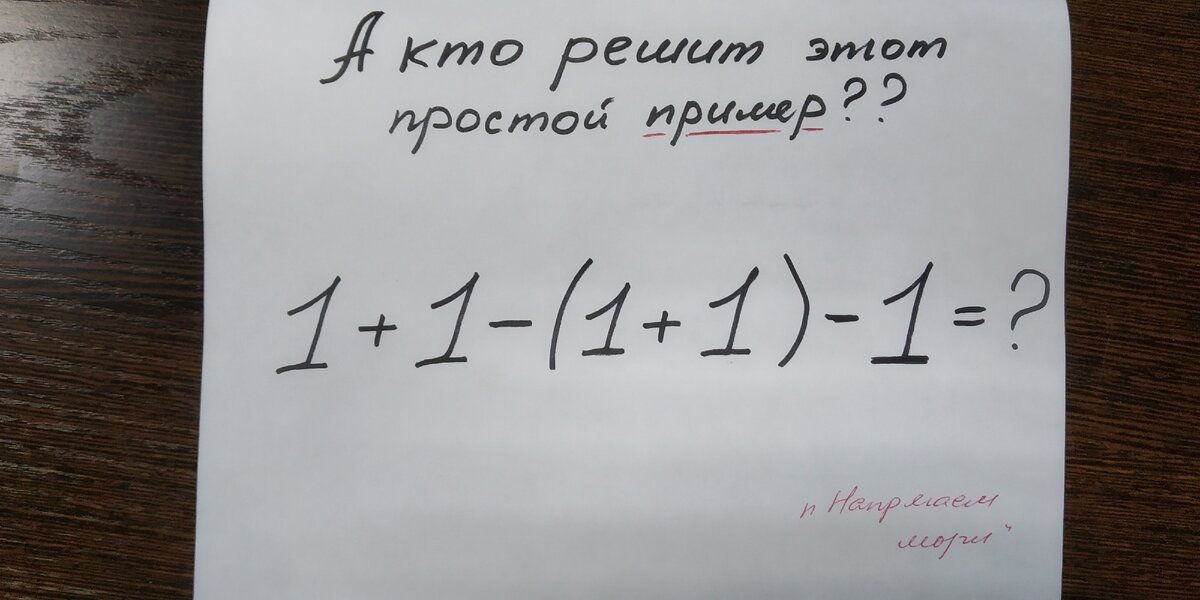 А кто решит этот
простой пример??
1+1-(1+1)-1=?
"Напрягаем
мозги"